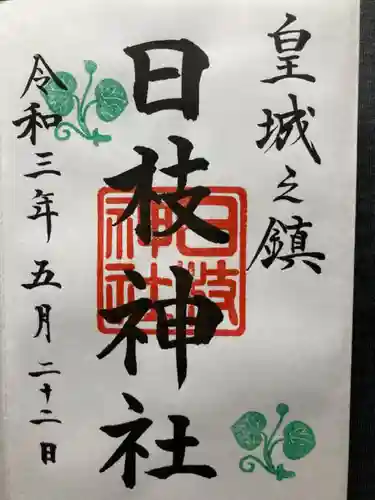 皇城之鎮
日枝神社
日枝
神社
令和三年五月二十二日